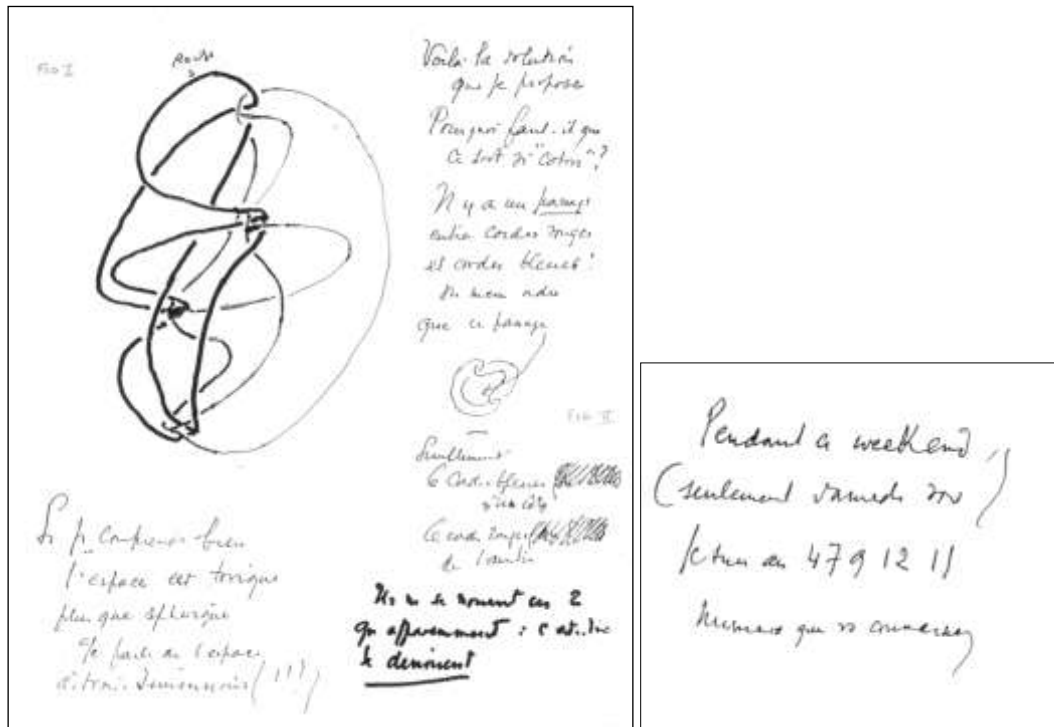 FIG I
Voilà la solution
que je propose
Pourquoi faut-il que
ce soit si "coton"?
Il y a un passage
entre cordes rouges
et cordes bleues !
du même ordre
que ce passage
FIG II
Seulement
6 cordes bleues
d'un côté
6 cordes rouges
de l'autre
Si je comprends bien
l'espace est torique
plus que sphérique
Je parle de l'espace
à trois dimensions (!!?)
Ils ne se nouent ces 2
qu'apparemment : c'est-à-dire
se dénouent
Pendant ce weekend,
(seulement samedi soir)
je suis au 479 12 11
numéro que vs connaissez